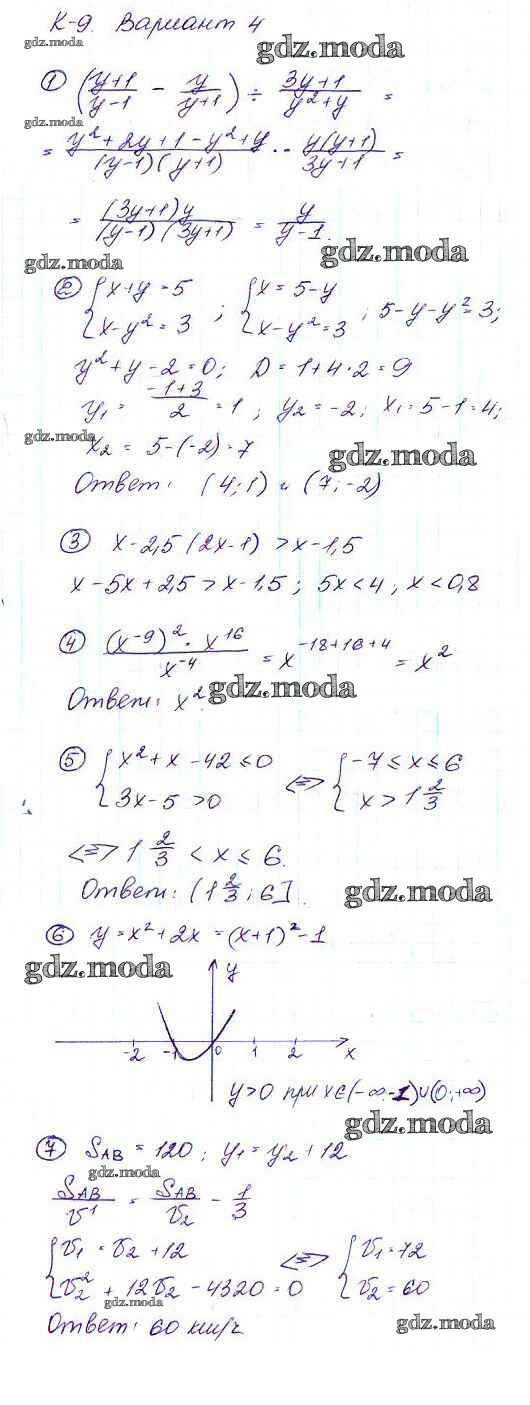 К-9. Вариант 4
gdz.moda
① (y+1/y-1 - y/y+1) ÷ 3y+1/y²+y =
gdz.moda
gdz.moda
= y²+2y+1-y²+y/(y-1)(y+1) · y(y+1)/3y+1 =
= (3y+1)y/(y-1)(3y+1) = y/y-1.
gdz.moda
gdz.moda
② {x+y=5 x-y²=3 ; {x=5-y x-y²=3 ; 5-y-y²=3;
y²+y-2=0; D=1+4·2=9
y₁ = -1+3/2 = 1 ; y₂=-2; x₁=5-1=4;
gdz.moda
x₂ = 5-(-2)=7
gdz.moda
Ответ: (4;1) и (7;-2)
③ x-2,5(2x-1) > x-1,5
x-5x+2,5 > x-1,5 ; 5x<4, x<0,8
④ (x⁻⁹)² · x¹⁶/x⁻⁴ = x⁻¹⁸⁺¹⁶⁺⁴ = x²
gdz.moda
Ответ: x².
⑤ {x²+x-42≤0 3x-5>0 <=> {-7≤x≤6 x>1 2/3
<=> 1 2/3 < x ≤ 6.
Ответ: (1 2/3; 6].
gdz.moda
⑥ y=x²+2x=(x+1)²-1
gdz.moda
y
-2 -1 0 1 2 x
y>0 при x∈(-∞-1)∪(0;+∞)
gdz.moda
⑦ S_AB = 120; y₁=y₂+12
gdz.moda
S_AB/v¹ = S_AB/v₂ - 1/3
{v₁ = v₂+12 v₂²+12v₂-4320=0 <=> {v₁=72 v₂=60
gdz.moda
Ответ: 60 км/ч
gdz.moda